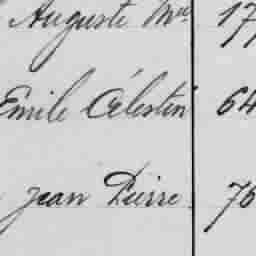 Auguste Mie 17
Emile Célestin 64
Jean Pierre 76